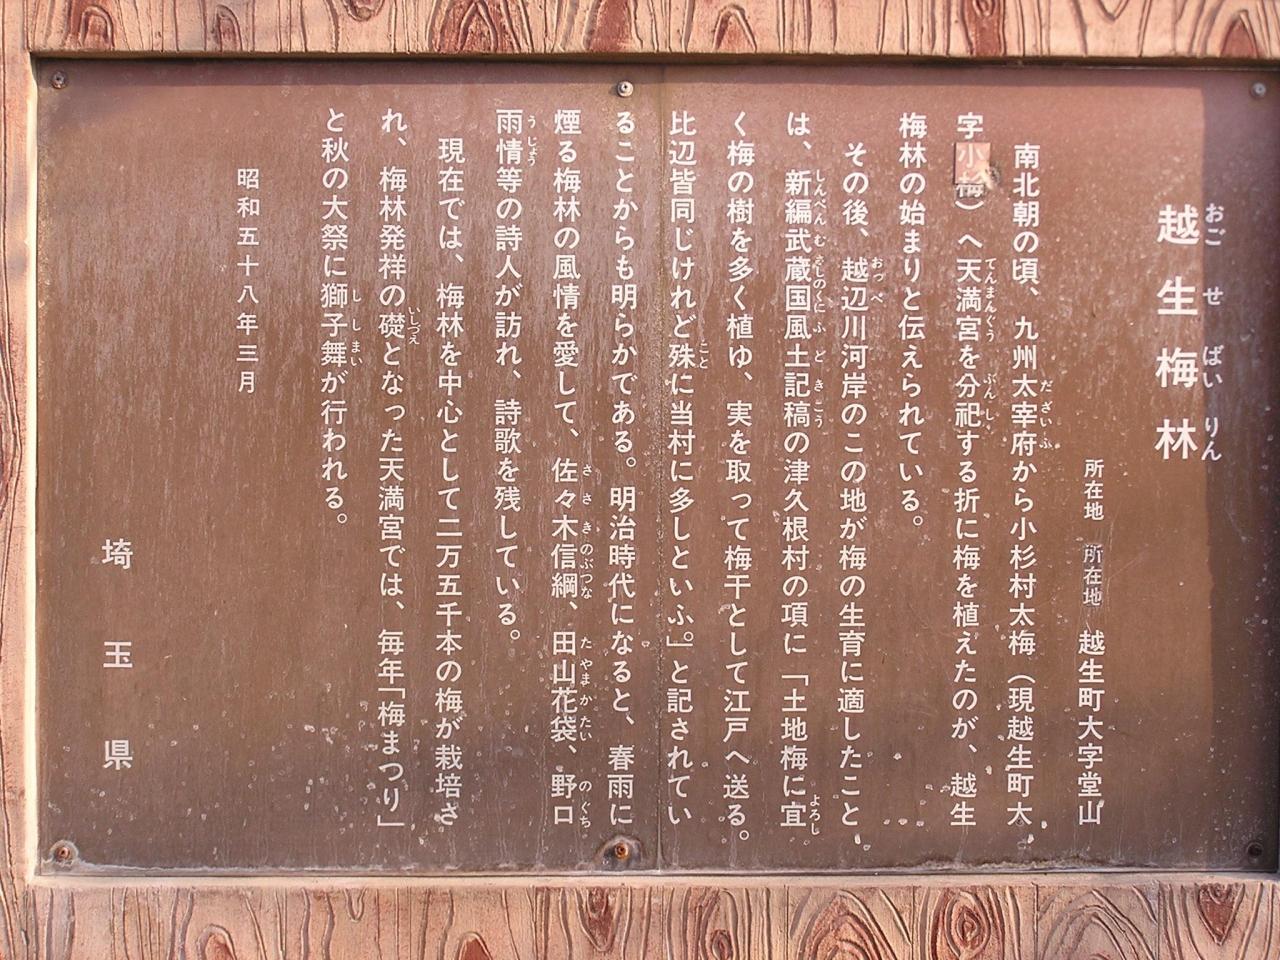 越生梅林
おごせばいりん
所在地 所在地 越生町大字堂山
南北朝の頃、九州太宰府から小杉村太梅（現越生町大
だざいふ
字小梅）へ天満宮を分祀する折に梅を植えたのが、越生
てんまんぐう ぶんし
梅林の始まりと伝えられている。
その後、越辺川河岸のこの地が梅の生育に適したこと
おっぺ
は、新編武蔵国風土記稿の津久根村の項に「土地梅に宜
しんぺんむさしのくにふどきこう よろし
く梅の樹を多く植ゆ、実を取って梅干として江戸へ送る。
比辺皆同じけれど殊に当村に多しといふ。」と記されてい
こと
ることからも明らかである。明治時代になると、春雨に
煙る梅林の風情を愛して、佐々木信綱、田山花袋、野口
ささきのぶつな たやまかたい のぐち
雨情等の詩人が訪れ、詩歌を残している。
うじょう
現在では、梅林を中心として二万五千本の梅が栽培さ
れ、梅林発祥の礎となった天満宮では、毎年「梅まつり」
いしづえ
と秋の大祭に獅子舞が行われる。
ししまい
昭和五十八年三月
埼玉県